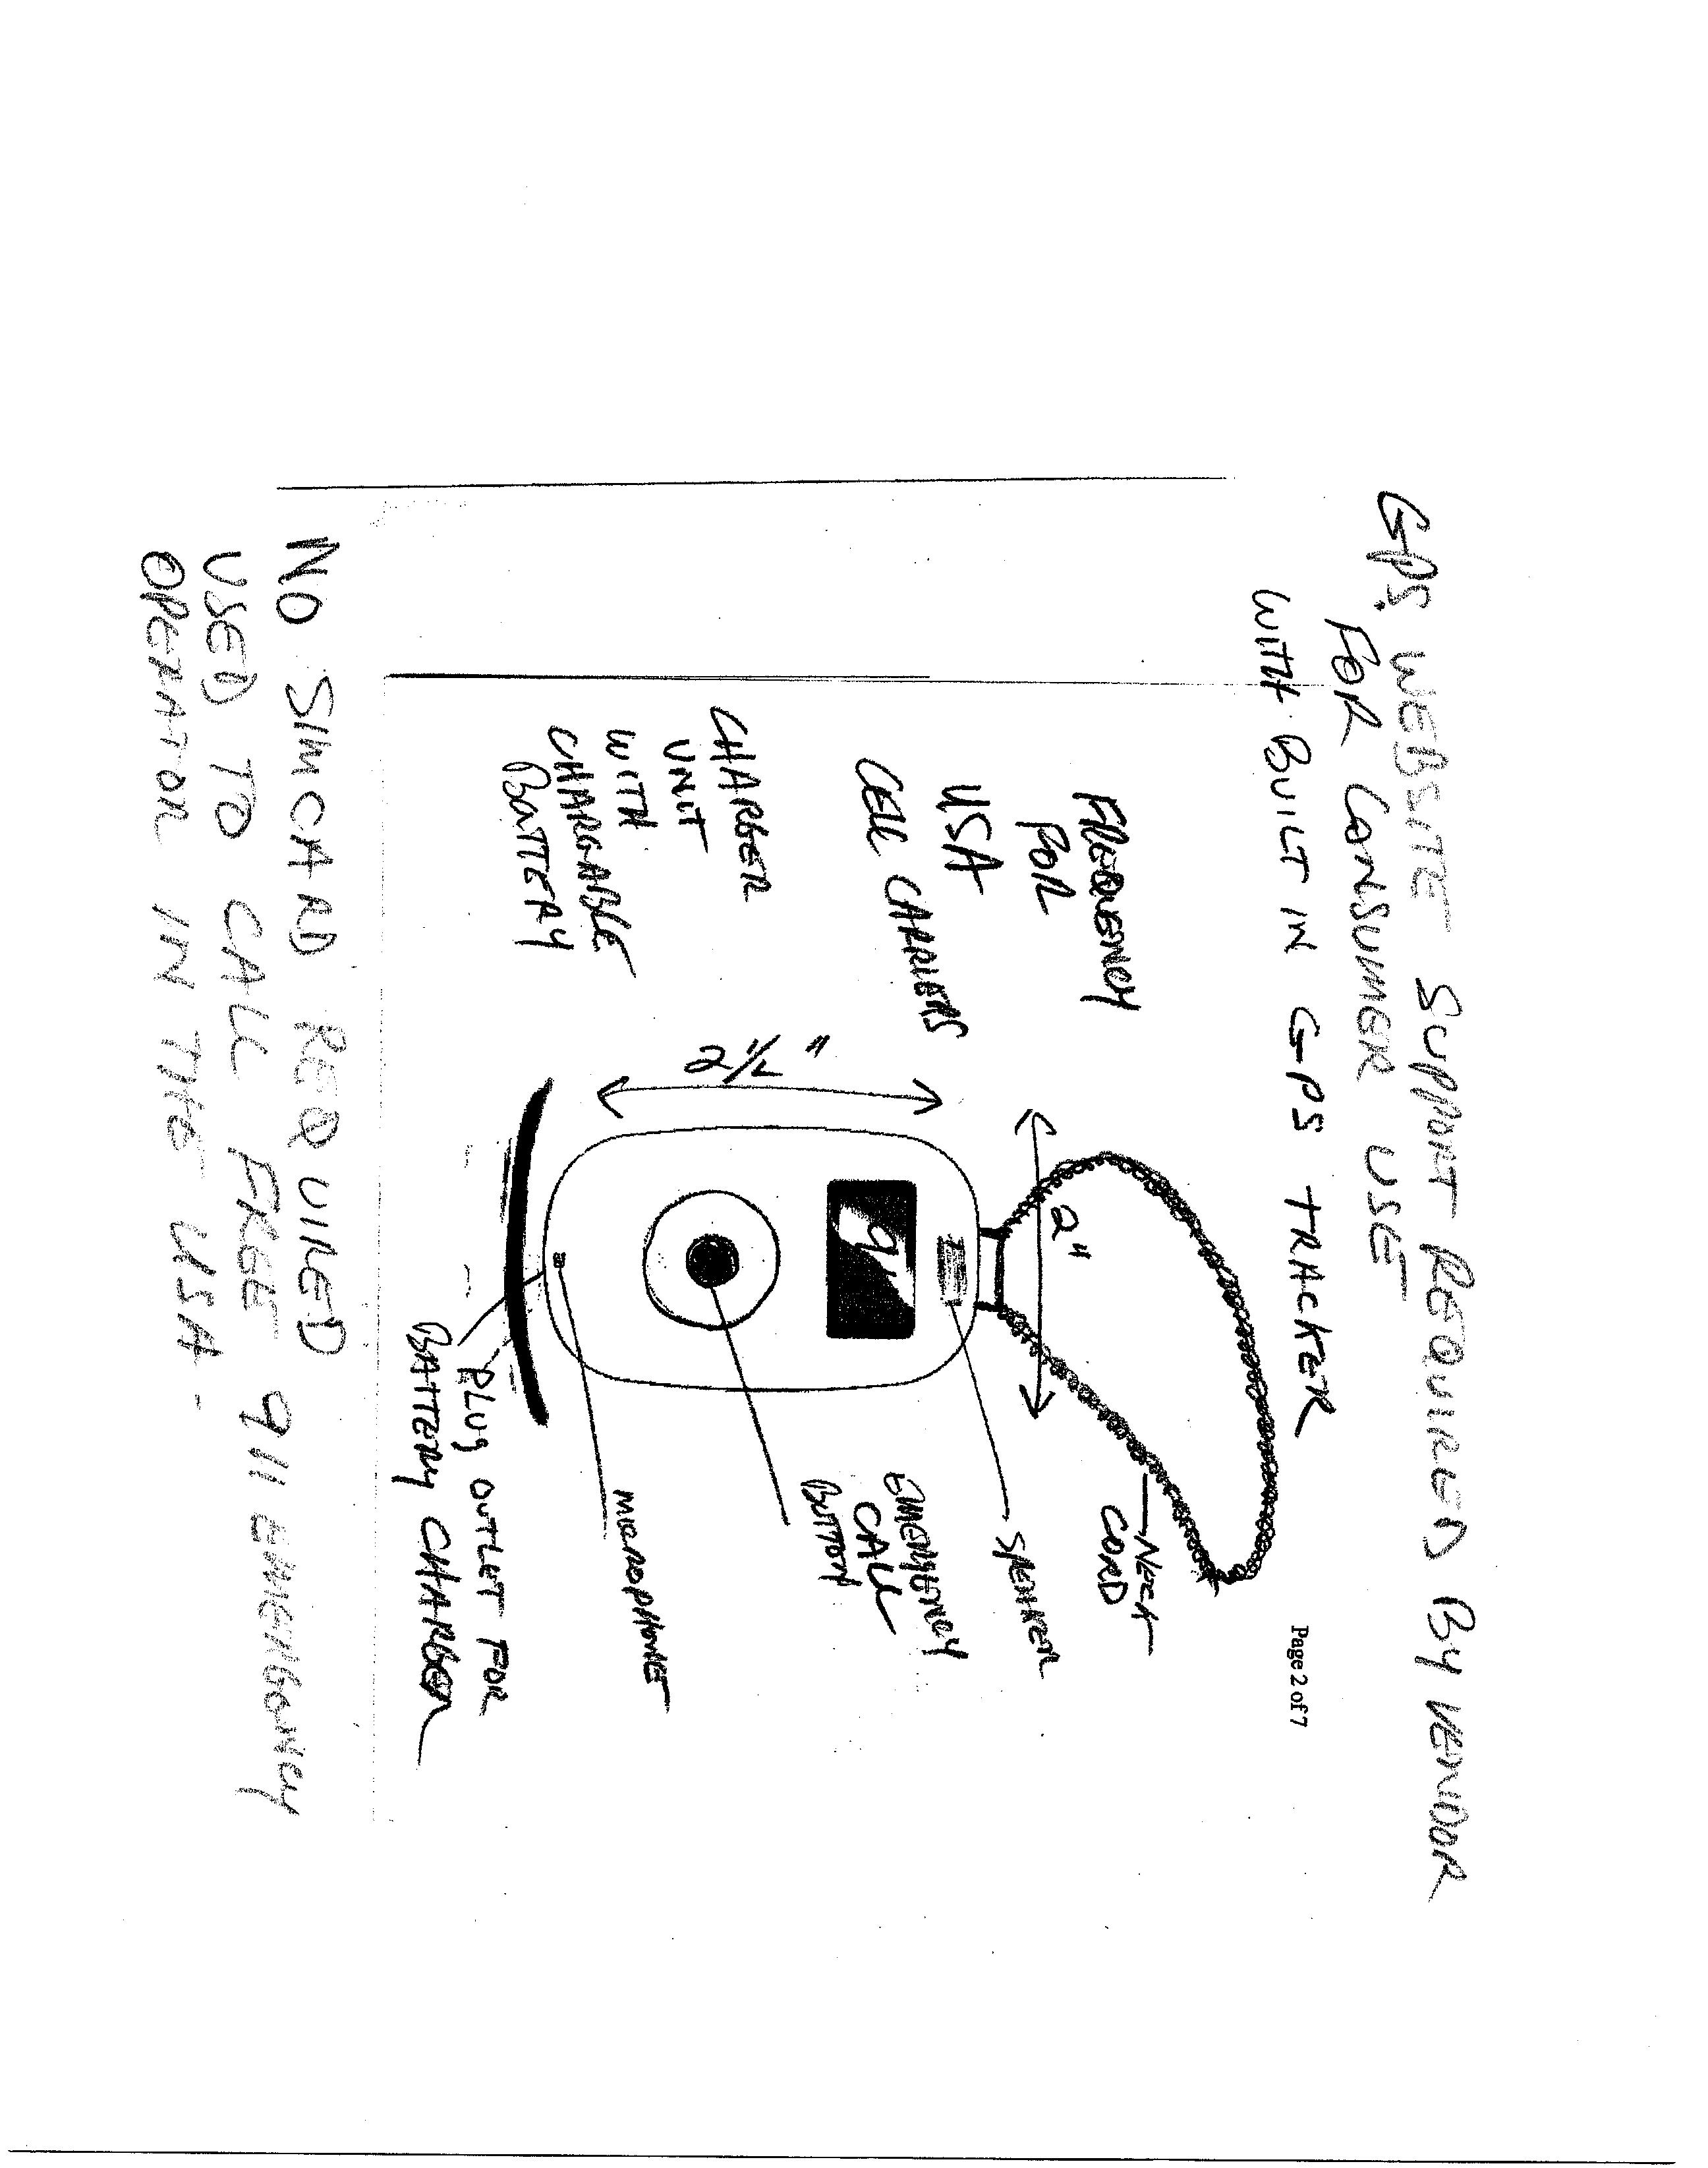 GPS. WEBSITE SUPPORT REQUIRED BY VENDOR
FOR CONSUMER USE
WITH BUILT IN GPS TRACKER
Page 2 of 7
FREQUENCY
FOR
USA
CELL CARRIERS
NECK
CORD
2"
SPEAKER
2 1/2 "
911
EMERGENCY
CALL
BUTTON
CHARGER
UNIT
WITH
CHARGABLE
BATTERY
MICROPHONE
PLUG OUTLET FOR
BATTERY CHARGER
NO SIMCARD REQUIRED
USED TO CALL FREE 911 EMERGENCY
OPERATOR IN THE USA -